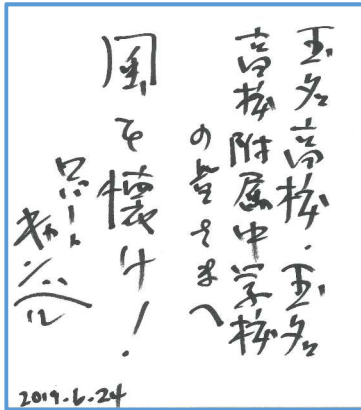 玉名高校・玉名
高校附属中学校
の皆さまへ
風を懐け!
ロバート
キャンベル
2019.6.24